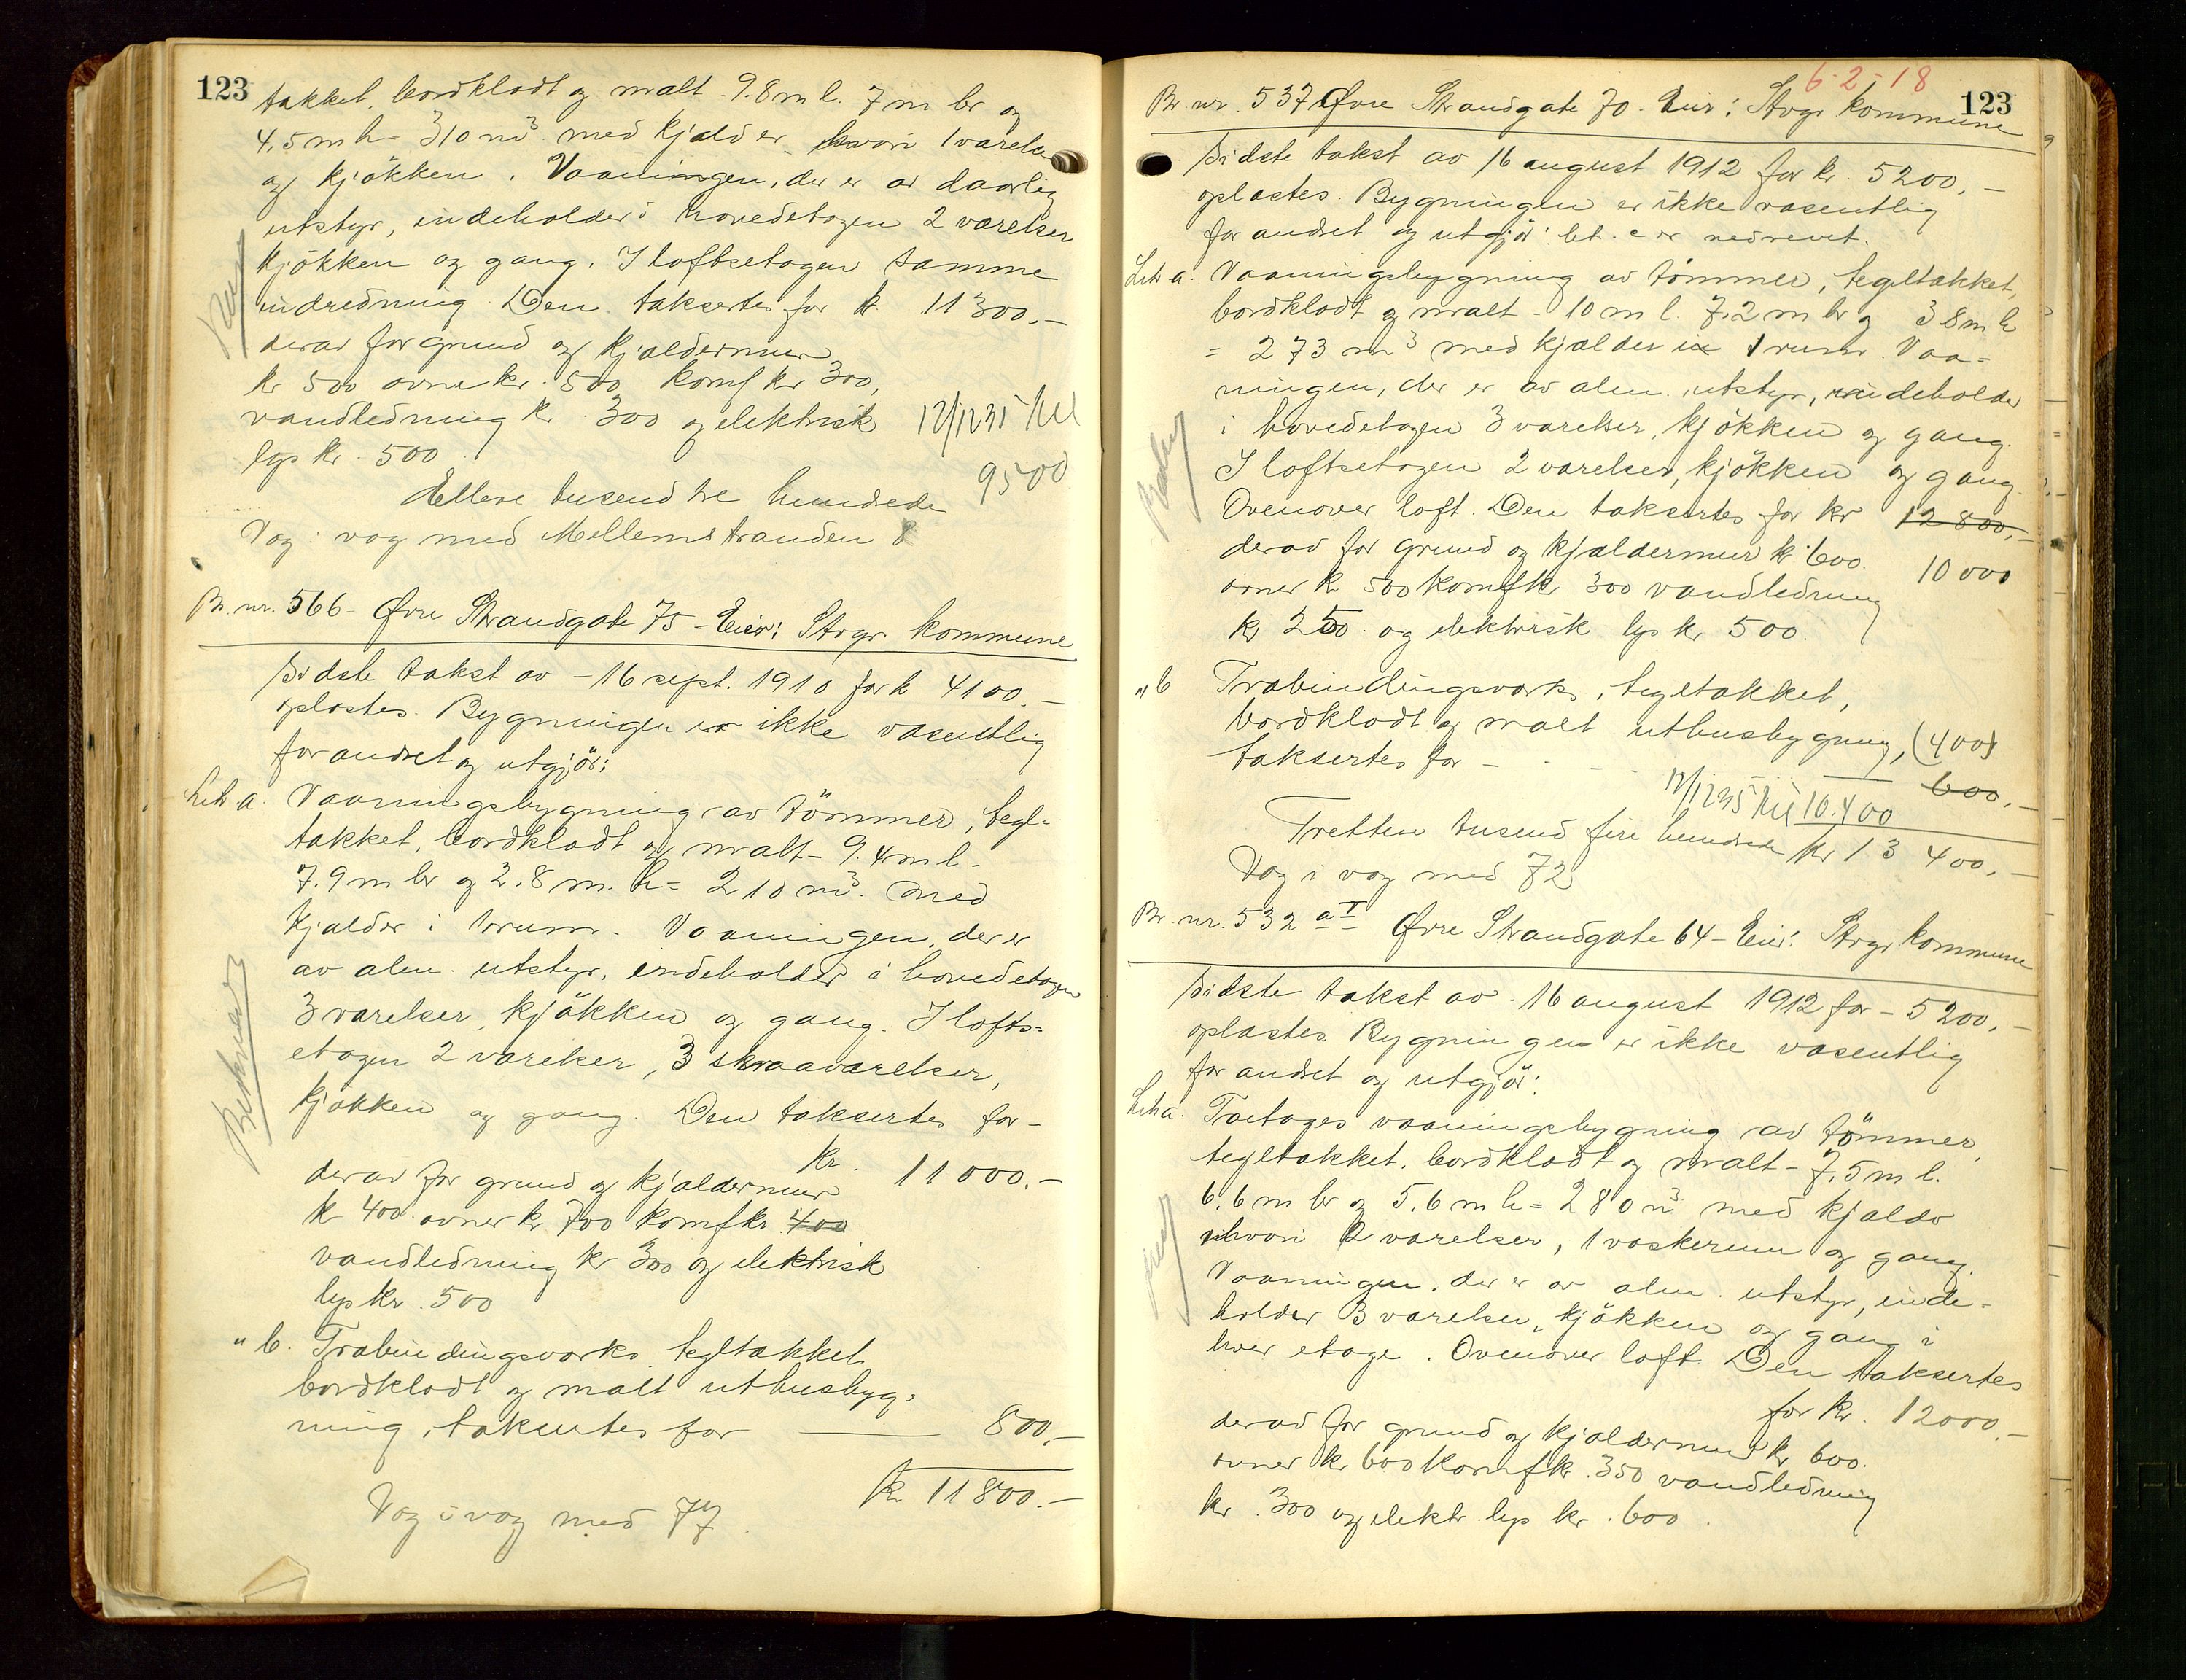 123
takket, bordklædt og malt - 9.8 m l. 7 m br og
4,5 m h = 310 m³ med kjælder hvori 1 værelse
og kjökken. Vaaningen, der er av daarlig
utstyr, indeholder i hovedetagen 2 værelser
kjökken og gang. I loftsetagen samme
indredning. Den taksertes for k 11300,-
derav for grund og kjældermur
kr 500 ovne kr. 500 komf kr 300,
vandledning kr. 300 og elektrisk 12/12 35
lys kr. 500
9500
Elleve tusend tre hundrede
Væg i væg med Mellemstranden 8
Br. nr. 566 - Øvre Strandgate 75 - Eier: Stvgr kommune
Sidste takst av - 16 sept. 1910 for k 4100.-
oplæstes. Bygningen er ikke væsentlig
forandret og utgjör:
Litr a. Vaaningsbygning av tömmer, tegl-
takket, bordklædt og malt - 9.4 m l -
7.9 m br og 2.8 m. h = 210 m³. med
kjælder i 1 rum. Vaaningen, der er
av alm. utstyr, indeholder i hovedetagen
3 værelser, kjökken og gang. I lofts-
etagen 2 værelser, 3 skraaværelser,
kjökken og gang. Den taksertes for -
kr. 11000.-
derav for grund og kjældermur
k 400 ovner kr 700 komf kr. 400
vandledning kr 300 og elektrisk
lys kr. 500
" b. Træbindingsverks, tegltakket
bordklædt og malt uthusbyg-
ning, taksertes for 800,-
Kr. 11800.-
Væg i væg med 77.
6-2-18
123
Br. nr. 537 Øvre Strandgate 70 - Eier: Stvgr kommune
Sidste takst av 16 august 1912 for kr. 5200,-
oplæstes. Bygningen er ikke væsentlig
forandret og utgjör: lit. c er nedrevet.
Litr a. Vaaningsbygning av tömmer, tegltakket,
bordklædt og malt - 10 m l. 7.2 m br og 3.8 m h
= 273 m³ med kjælder i 1 rum. Vaa-
ningen, der er av alm. utstyr, indeholder
i hovedetagen 3 værelser, kjökken og gang.
I loftsetagen 2 værelser, kjökken og gang.
Ovenover loft. Den taksertes for kr 12800,-
derav for grund og kjældermur k 600. 10000
ovner k 500 komf kr 300 vandledning
kr 250. og elektrisk lys kr 500.
" b Træbindingsverks, tegltakket,
bordklædt og malt uthusbygning, (400)
taksertes for - 600,-
12/12 35 10.400
Tretten tusend fire hundrede kr 13 400,-
Væg i væg med 72
Br. nr. 532 a I Øvre Strandgate 64 - Eier: Stvgr kommune
Sidste takst av - 16 august 1912 for - 5200,-
oplæstes. Bygningen er ikke væsentlig
forandret og utgjör:
Litr a. Toetages vaaningsbygning av tömmer,
tegltakket, bordklædt og malt - 7,5 m l.
6.6 m br og 5.6 m h = 280 m³ med kjælder
hvori 2 værelser, 1 vaskerum og gang.
Vaaningen, der er av alm. utstyr, inde-
holder 3 værelser, kjökken og gang i
hver etage. Ovenover loft. Den taksertes
for kr. 12000.-
derav for grund og kjældermur kr 600.
ovner kr 600 komf kr. 350 vandledning
kr. 300 og elektr. lys kr. 600.